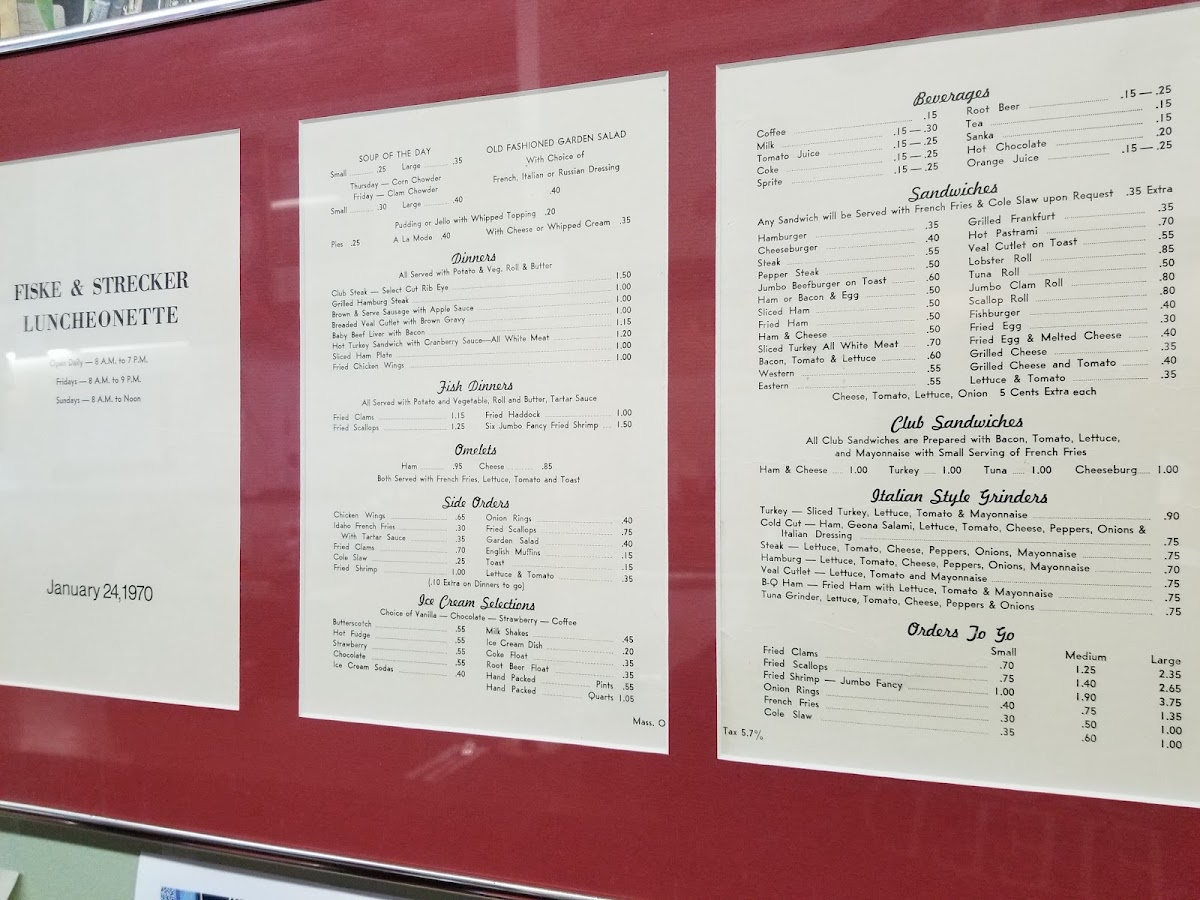 FISKE & STRECKER
LUNCHEONETTE
Open Daily — 8 A.M. to 7 P.M.
Fridays — 8 A.M. to 9 P.M.
Sundays — 8 A.M. to Noon
January 24, 1970
SOUP OF THE DAY
Small .25 Large .35
Thursday — Corn Chowder
Friday — Clam Chowder
Small .30 Large .40
OLD FASHIONED GARDEN SALAD
With Choice of
French, Italian or Russian Dressing
.40
Pudding or Jello with Whipped Topping .20
Pies .25 A La Mode .40 With Cheese or Whipped Cream .35
Dinners
All Served with Potato & Veg. Roll & Butter
Club Steak — Select Cut Rib Eye 1.50
Grilled Hamburg Steak 1.00
Brown & Serve Sausage with Apple Sauce 1.00
Breaded Veal Cutlet with Brown Gravy 1.00
Baby Beef Liver with Bacon 1.15
Hot Turkey Sandwich with Cranberry Sauce—All White Meat 1.20
Sliced Ham Plate 1.00
Fried Chicken Wings 1.00
Fish Dinners
All Served with Potato and Vegetable, Roll and Butter, Tartar Sauce
Fried Clams 1.15 Fried Haddock 1.00
Fried Scallops 1.25 Six Jumbo Fancy Fried Shrimp 1.50
Omelets
Ham .95 Cheese .85
Both Served with French Fries, Lettuce, Tomato and Toast
Side Orders
Chicken Wings .65
Idaho French Fries .30
With Tartar Sauce .35
Fried Clams .70
Cole Slaw .25
Fried Shrimp 1.00
Onion Rings .40
Fried Scallops .75
Garden Salad .40
English Muffins .15
Toast .15
Lettuce & Tomato .35
(.10 Extra on Dinners to go)
Ice Cream Selections
Choice of Vanilla — Chocolate — Strawberry — Coffee
Butterscotch .55
Hot Fudge .55
Strawberry .55
Chocolate .55
Ice Cream Sodas .40
Milk Shakes .45
Ice Cream Dish .20
Coke Float .35
Root Beer Float .35
Hand Packed Pints .55
Hand Packed Quarts 1.05
Mass. O
Beverages
Coffee .15
Milk .15 — .30
Tomato Juice .15 — .25
Coke .15 — .25
Sprite .15 — .25
Root Beer .15 — .25
Tea .15
Sanka .15
Hot Chocolate .20
Orange Juice .15 — .25
Sandwiches
Any Sandwich will be Served with French Fries & Cole Slaw upon Request .35 Extra
Hamburger .35
Cheeseburger .40
Steak .55
Pepper Steak .50
Jumbo Beefburger on Toast .60
Ham or Bacon & Egg .50
Sliced Ham .50
Fried Ham .50
Ham & Cheese .50
Sliced Turkey All White Meat .70
Bacon, Tomato & Lettuce .60
Western .55
Eastern .55
Grilled Frankfurt .35
Hot Pastrami .70
Veal Cutlet on Toast .55
Lobster Roll .85
Tuna Roll .50
Jumbo Clam Roll .80
Scallop Roll .80
Fishburger .40
Fried Egg .30
Fried Egg & Melted Cheese .40
Grilled Cheese .35
Grilled Cheese and Tomato .40
Lettuce & Tomato .35
Cheese, Tomato, Lettuce, Onion 5 Cents Extra each
Club Sandwiches
All Club Sandwiches are Prepared with Bacon, Tomato, Lettuce,
and Mayonnaise with Small Serving of French Fries
Ham & Cheese 1.00 Turkey 1.00 Tuna 1.00 Cheeseburg 1.00
Italian Style Grinders
Turkey — Sliced Turkey, Lettuce, Tomato & Mayonnaise .90
Cold Cut — Ham, Geona Salami, Lettuce, Tomato, Cheese, Peppers, Onions &
Italian Dressing .75
Steak — Lettuce, Tomato, Cheese, Peppers, Onions, Mayonnaise .75
Hamburg — Lettuce, Tomato, Cheese, Peppers, Onions, Mayonnaise .70
Veal Cutlet — Lettuce, Tomato and Mayonnaise .75
B-Q Ham — Fried Ham with Lettuce, Tomato & Mayonnaise .75
Tuna Grinder, Lettuce, Tomato, Cheese, Peppers & Onions .75
Orders To Go
Small Medium Large
Fried Clams .70 1.25 2.35
Fried Scallops .75 1.40 2.65
Fried Shrimp — Jumbo Fancy 1.00 1.90 3.75
Onion Rings .40 .75 1.35
French Fries .30 .50 1.00
Cole Slaw .35 .60 1.00
Tax 5.7%